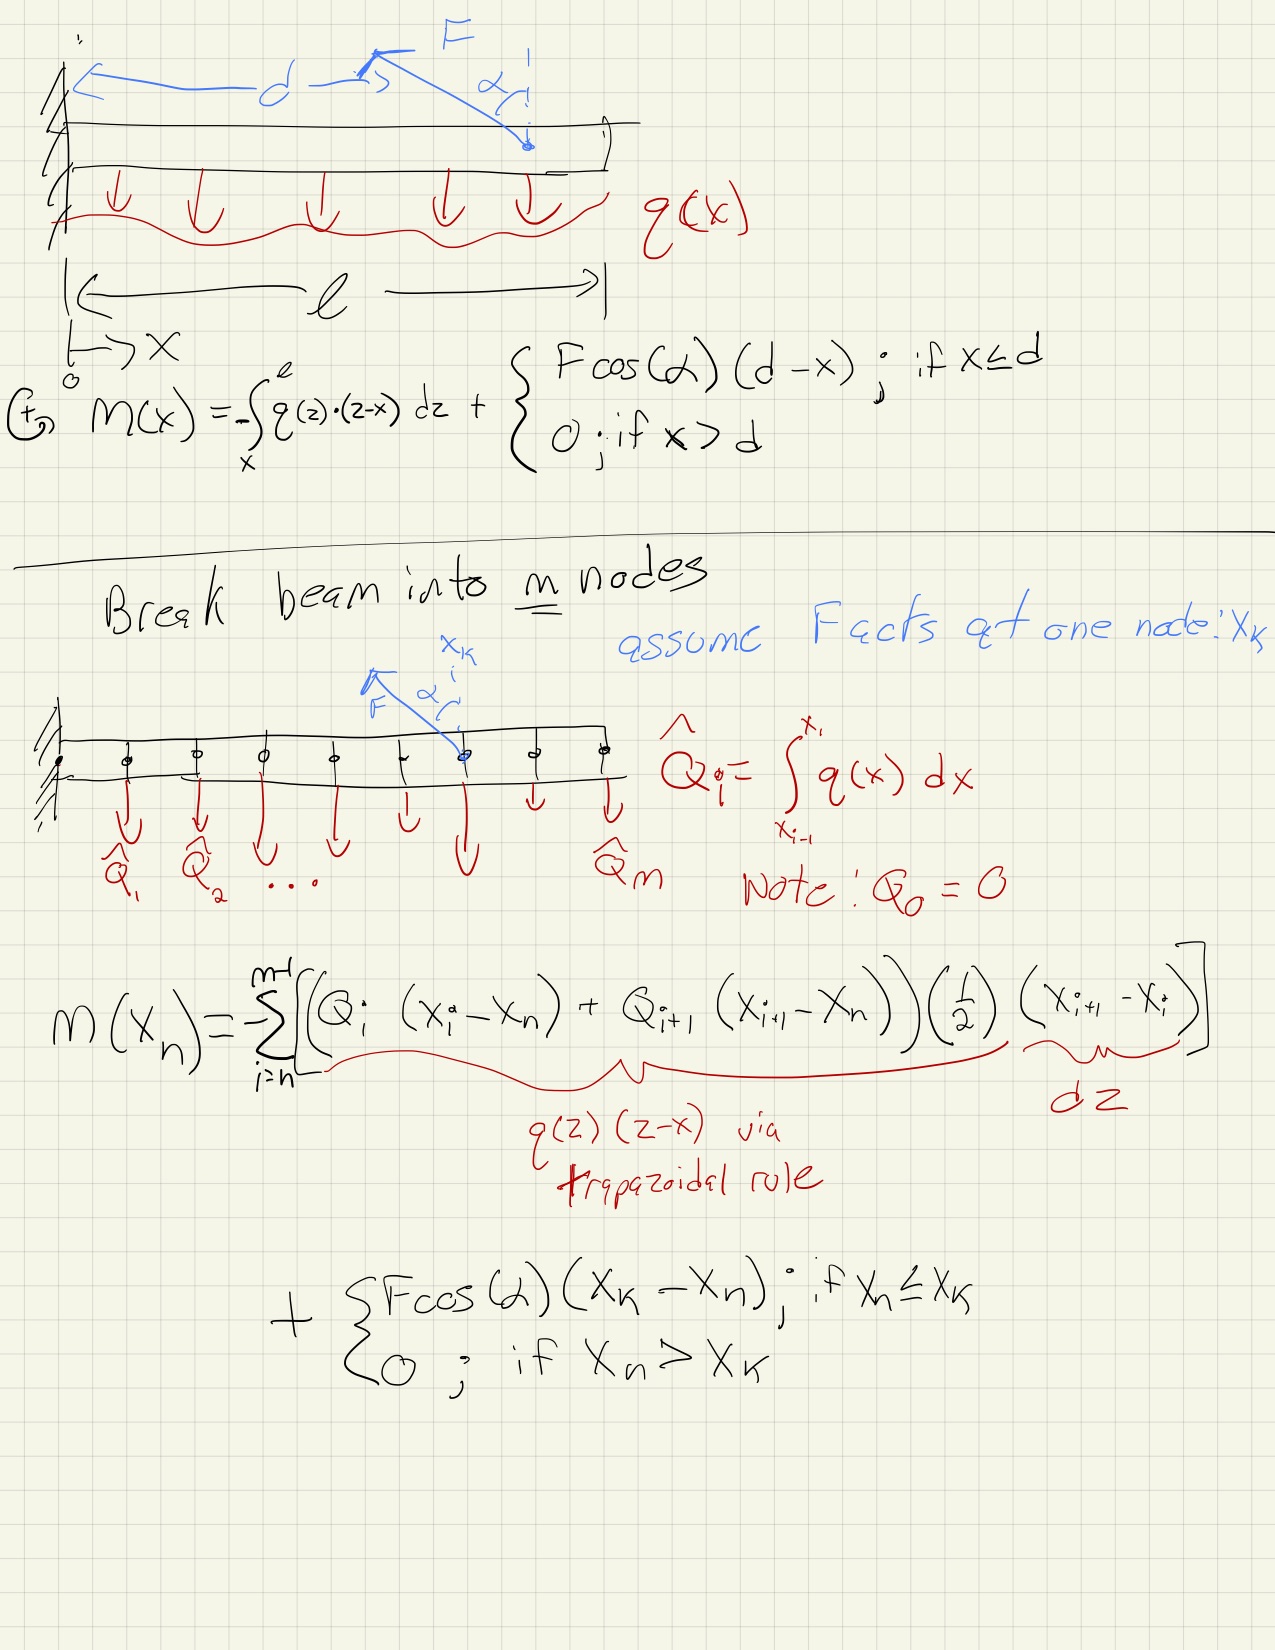 F
d
α
q(x)
ℓ
0 → x
(+) M(x) = -∫_x^ℓ q(z)·(z-x) dz + { Fcos(α)(d-x) ; if x≤d
0 ; if x>d
Break beam into m nodes
assume F acts at one node: x_k
x_k
F α
Q̂_i = ∫_{x_{i-1}}^{x_i} q(x) dx
Q̂_1 Q̂_2 ... Q̂_m
Note: Q_0 = 0
M(x_n) = -∑_{i=n}^{m-1} [(Q_i (x_i - x_n) + Q_{i+1} (x_{i+1} - x_n))(1/2) (x_{i+1} - x_i)]
dz
q(z) (z-x) via
trapazoidal rule
+ { Fcos(α)(x_k - x_n) ; if x_n ≤ x_k
0 ; if x_n > x_k